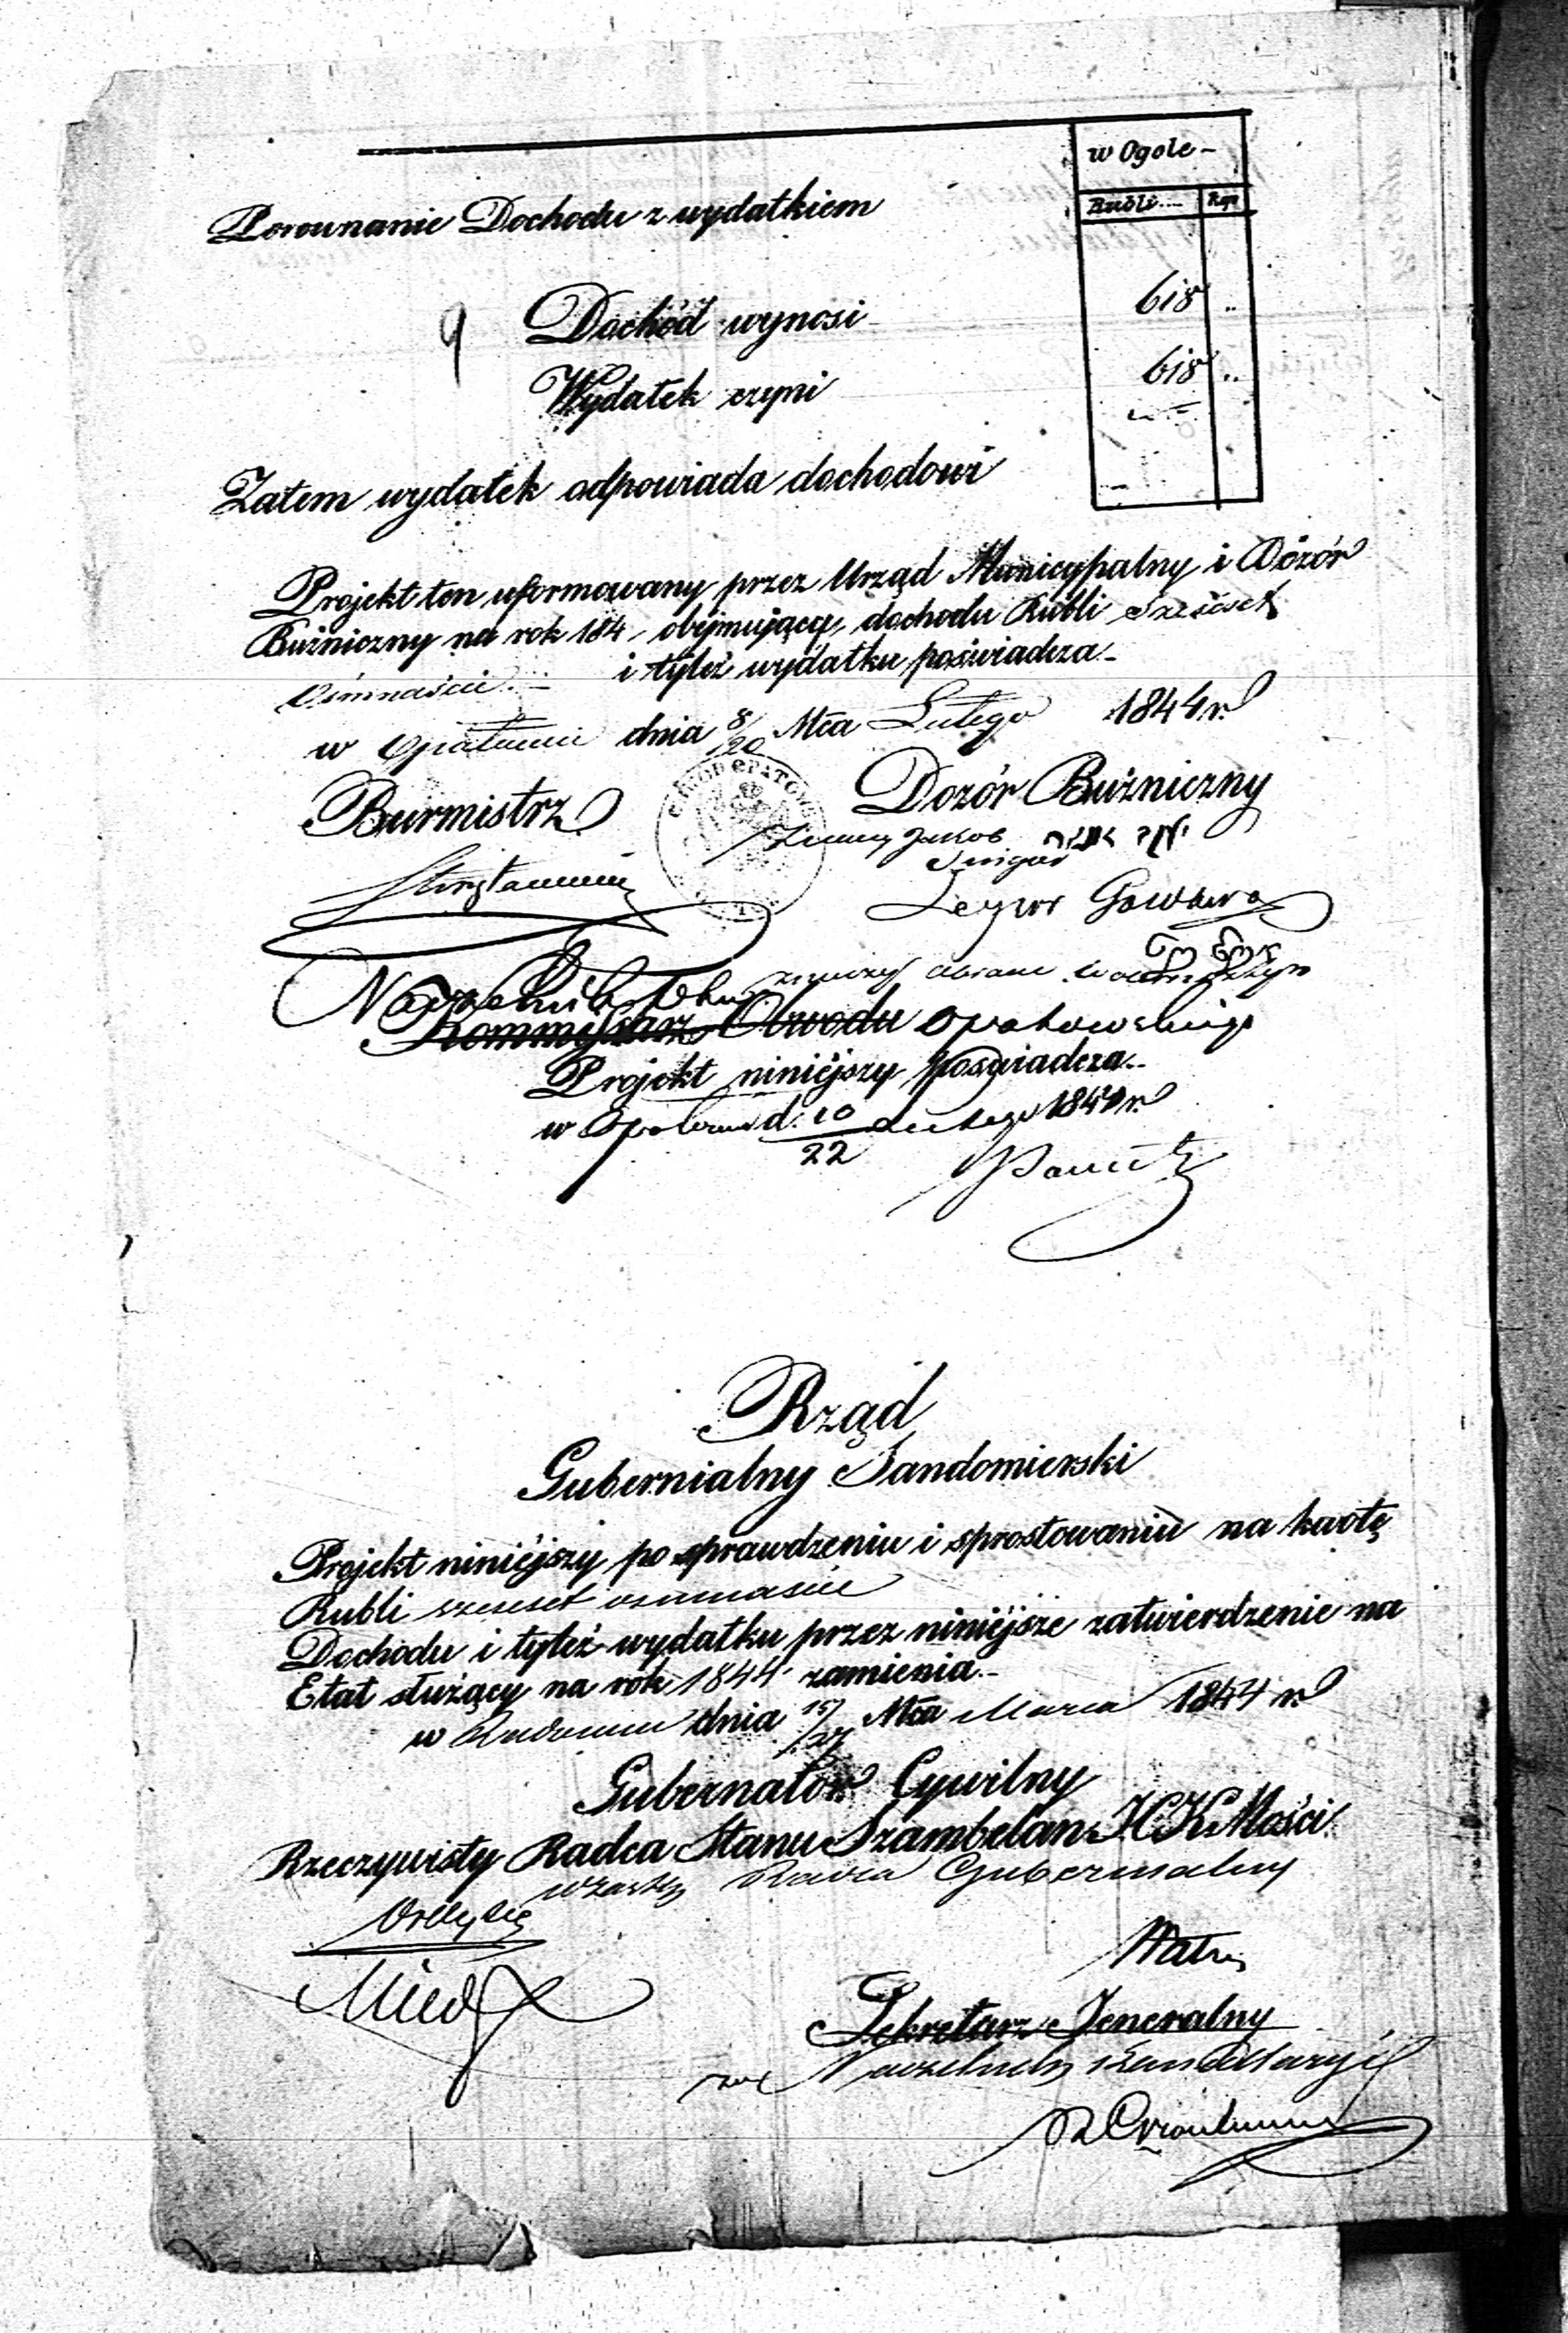 w Ogole -
Rubli Kop
Porownanie Dochodu z wydatkiem
9 Dochód wynosi 618 ..
Wydatek czyni 618 ..
Zatem wydatek odpowiada dochodowi
Projekt ten uformowany przez Urząd Municypalny i Dozór
Bużniczny na rok 184 obéjmujący dochodu Rubli sześćset
ośmnaście i tyleż wydatku poświadcza
w Opatowie dnia 8/20 Mca Lutego 1844 r.
Burmistrz Dozór Bużniczny
Jakob
Gowarą
Naczelnik
Kommissarz Obwodu Opatowskiego
Projekt niniéjszy poświadcza
w Opatowie d. 10/22 Lutego 1844 r.
Rząd
Gubernialny Sandomierski
Projekt niniéjszy po sprawdzeniu i sprostowaniu na kwotę
Rubli szescset osmnascie
Dochodu i tyleż wydatku przez niniéjsze zatwierdzenie na
Etat służący na rok 1844 zamienia
w Radomiu dnia 15/27 Mca Marca 1844 r.
Gubernator Cywilny
Rzeczywisty Radca Stanu Szambelan J.C.K. Mości
Radca Gubernialny
Sekretarz Jeneralny
Naczelnik Kancellaryi